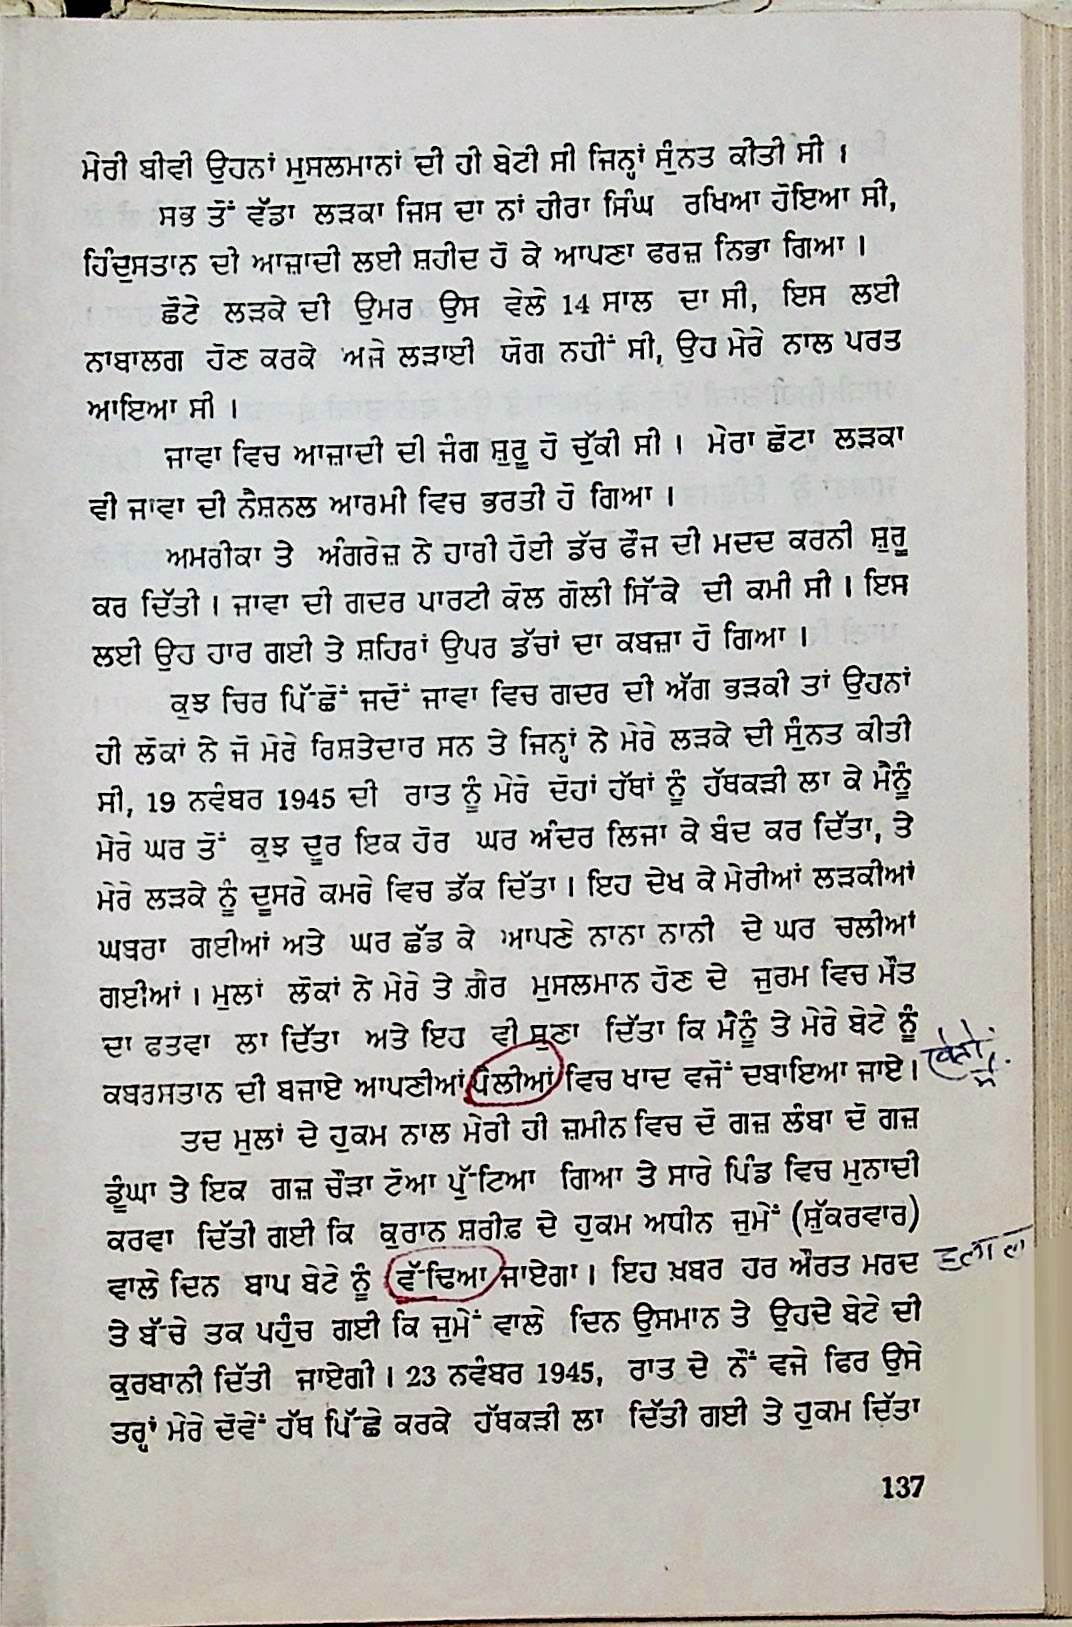 ਮੇਰੀ ਬੀਵੀ ਉਹਨਾਂ ਮੁਸਲਮਾਨਾਂ ਦੀ ਹੀ ਬੇਟੀ ਸੀ ਜਿਨ੍ਹਾਂ ਸੁੰਨਤ ਕੀਤੀ ਸੀ ।
ਸਭ ਤੋਂ ਵੱਡਾ ਲੜਕਾ ਜਿਸ ਦਾ ਨਾਂ ਹੀਰਾ ਸਿੰਘ ਰਖਿਆ ਹੋਇਆ ਸੀ,
ਹਿੰਦੁਸਤਾਨ ਦੀ ਆਜ਼ਾਦੀ ਲਈ ਸ਼ਹੀਦ ਹੋ ਕੇ ਆਪਣਾ ਫਰਜ਼ ਨਿਭਾ ਗਿਆ ।
ਛੋਟੇ ਲੜਕੇ ਦੀ ਉਮਰ ਉਸ ਵੇਲੇ 14 ਸਾਲ ਦਾ ਸੀ, ਇਸ ਲਈ
ਨਾਬਾਲਗ ਹੋਣ ਕਰਕੇ ਅਜੇ ਲੜਾਈ ਯੋਗ ਨਹੀਂ ਸੀ, ਉਹ ਮੇਰੇ ਨਾਲ ਪਰਤ
ਆਇਆ ਸੀ ।
ਜਾਵਾ ਵਿਚ ਆਜ਼ਾਦੀ ਦੀ ਜੰਗ ਸ਼ੁਰੂ ਹੋ ਚੁੱਕੀ ਸੀ । ਮੇਰਾ ਛੋਟਾ ਲੜਕਾ
ਵੀ ਜਾਵਾ ਦੀ ਨੈਸ਼ਨਲ ਆਰਮੀ ਵਿਚ ਭਰਤੀ ਹੋ ਗਿਆ ।
ਅਮਰੀਕਾ ਤੇ ਅੰਗਰੇਜ਼ ਨੇ ਹਾਰੀ ਹੋਈ ਡੱਚ ਫੌਜ ਦੀ ਮਦਦ ਕਰਨੀ ਸ਼ੁਰੂ
ਕਰ ਦਿੱਤੀ । ਜਾਵਾ ਦੀ ਗਦਰ ਪਾਰਟੀ ਕੋਲ ਗੋਲੀ ਸਿੱਕੇ ਦੀ ਕਮੀ ਸੀ । ਇਸ
ਲਈ ਉਹ ਹਾਰ ਗਈ ਤੇ ਸ਼ਹਿਰਾਂ ਉਪਰ ਡੱਚਾਂ ਦਾ ਕਬਜ਼ਾ ਹੋ ਗਿਆ ।
ਕੁਝ ਚਿਰ ਪਿੱਛੋਂ ਜਦੋਂ ਜਾਵਾ ਵਿਚ ਗਦਰ ਦੀ ਅੱਗ ਭੜਕੀ ਤਾਂ ਉਹਨਾਂ
ਹੀ ਲੋਕਾਂ ਨੇ ਜੋ ਮੇਰੇ ਰਿਸ਼ਤੇਦਾਰ ਸਨ ਤੇ ਜਿਨ੍ਹਾਂ ਨੇ ਮੇਰੇ ਲੜਕੇ ਦੀ ਸੁੰਨਤ ਕੀਤੀ
ਸੀ, 19 ਨਵੰਬਰ 1945 ਦੀ ਰਾਤ ਨੂੰ ਮੇਰੇ ਦੋਹਾਂ ਹੱਥਾਂ ਨੂੰ ਹੱਥਕੜੀ ਲਾ ਕੇ ਮੈਨੂੰ
ਮੇਰੇ ਘਰ ਤੋਂ ਕੁਝ ਦੂਰ ਇਕ ਹੋਰ ਘਰ ਅੰਦਰ ਲਿਜਾ ਕੇ ਬੰਦ ਕਰ ਦਿੱਤਾ, ਤੇ
ਮੇਰੇ ਲੜਕੇ ਨੂੰ ਦੂਸਰੇ ਕਮਰੇ ਵਿਚ ਡੱਕ ਦਿੱਤਾ । ਇਹ ਦੇਖ ਕੇ ਮੇਰੀਆਂ ਲੜਕੀਆਂ
ਘਬਰਾ ਗਈਆਂ ਅਤੇ ਘਰ ਛੱਡ ਕੇ ਆਪਣੇ ਨਾਨਾ ਨਾਨੀ ਦੇ ਘਰ ਚਲੀਆਂ
ਗਈਆਂ । ਮੁਲਾਂ ਲੋਕਾਂ ਨੇ ਮੇਰੇ ਤੇ ਗ਼ੈਰ ਮੁਸਲਮਾਨ ਹੋਣ ਦੇ ਜੁਰਮ ਵਿਚ ਮੌਤ
ਦਾ ਫਤਵਾ ਲਾ ਦਿੱਤਾ ਅਤੇ ਇਹ ਵੀ ਸੁਣਾ ਦਿੱਤਾ ਕਿ ਮੈਨੂੰ ਤੇ ਮੇਰੇ ਬੇਟੇ ਨੂੰ
ਕਬਰਸਤਾਨ ਦੀ ਬਜਾਏ ਆਪਣੀਆਂ ਪੈਲੀਆਂ ਵਿਚ ਖਾਦ ਵਜੋਂ ਦਬਾਇਆ ਜਾਏ ।
ਤਦ ਮੁਲਾਂ ਦੇ ਹੁਕਮ ਨਾਲ ਮੇਰੀ ਹੀ ਜ਼ਮੀਨ ਵਿਚ ਦੋ ਗਜ਼ ਲੰਬਾ ਦੋ ਗਜ਼
ਡੂੰਘਾ ਤੇ ਇਕ ਗਜ਼ ਚੌੜਾ ਟੋਆ ਪੁੱਟਿਆ ਗਿਆ ਤੇ ਸਾਰੇ ਪਿੰਡ ਵਿਚ ਮੁਨਾਦੀ
ਕਰਵਾ ਦਿੱਤੀ ਗਈ ਕਿ ਕੁਰਾਨ ਸ਼ਰੀਫ਼ ਦੇ ਹੁਕਮ ਅਧੀਨ ਜੁਮੇਂ (ਸ਼ੁੱਕਰਵਾਰ)
ਵਾਲੇ ਦਿਨ ਬਾਪ ਬੇਟੇ ਨੂੰ ਵੱਢਿਆ ਜਾਏਗਾ । ਇਹ ਖ਼ਬਰ ਹਰ ਔਰਤ ਮਰਦ ਹਲਾਲ
ਤੇ ਬੱਚੇ ਤਕ ਪਹੁੰਚ ਗਈ ਕਿ ਜੁਮੇਂ ਵਾਲੇ ਦਿਨ ਉਸਮਾਨ ਤੇ ਉਹਦੇ ਬੇਟੇ ਦੀ
ਕੁਰਬਾਨੀ ਦਿੱਤੀ ਜਾਏਗੀ । 23 ਨਵੰਬਰ 1945, ਰਾਤ ਦੇ ਨੌਂ ਵਜੇ ਫਿਰ ਉਸੇ
ਤਰ੍ਹਾਂ ਮੇਰੇ ਦੋਵੇਂ ਹੱਥ ਪਿੱਛੇ ਕਰਕੇ ਹੱਥਕੜੀ ਲਾ ਦਿੱਤੀ ਗਈ ਤੇ ਹੁਕਮ ਦਿੱਤਾ
137